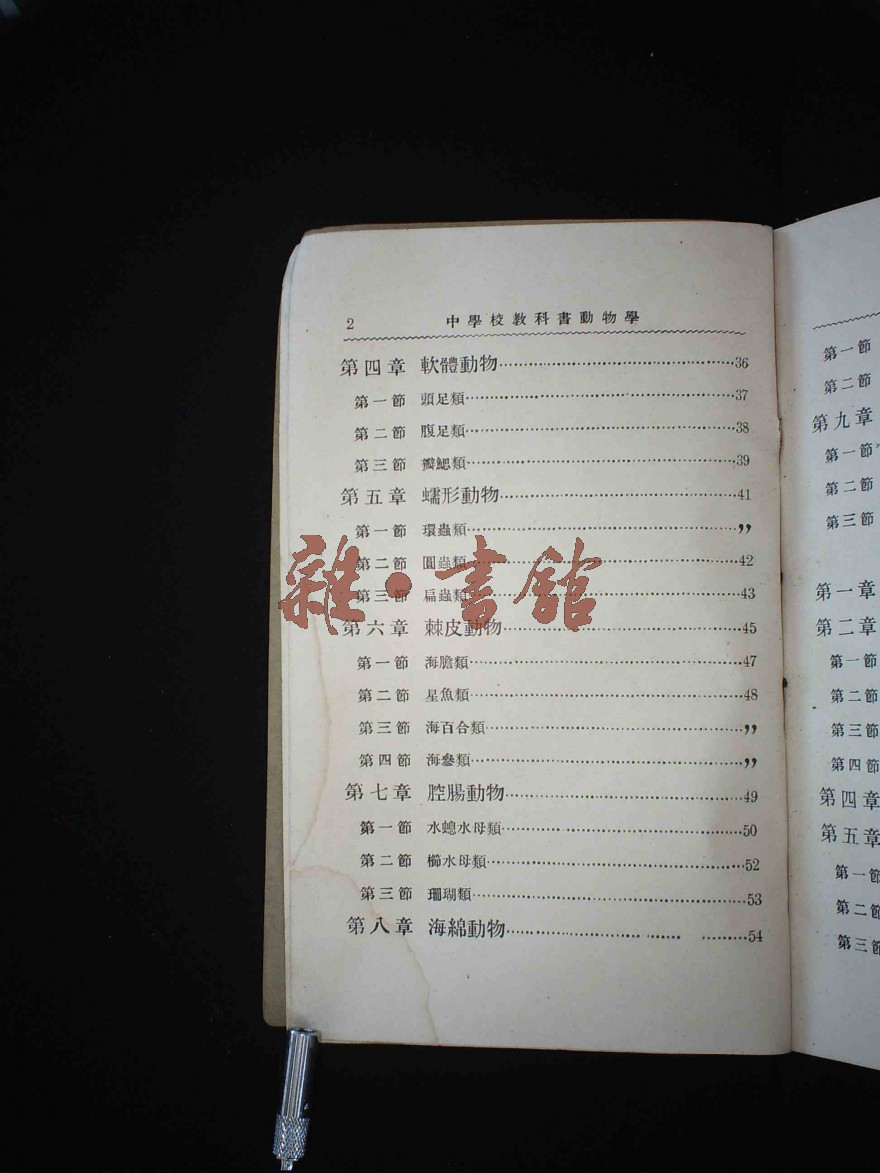 2 中學校教科書動物學
第四章 軟體動物……36
第一節 頭足類……37
第二節 腹足類……38
第三節 瓣鰓類……39
第五章 蠕形動物……41
第一節 環蟲類……〃
第二節 圓蟲類……42
第三節 扁蟲類……43
雜·書館
第六章 棘皮動物……45
第一節 海膽類……47
第二節 星魚類……48
第三節 海百合類……〃
第四節 海參類……〃
第七章 腔腸動物……49
第一節 水螅水母類……50
第二節 櫛水母類……52
第三節 珊瑚類……53
第八章 海綿動物……54
第一節
第二節
第九章
第一節
第二節
第三節
第一章
第二章
第一節
第二節
第三節
第四節
第四章
第五章
第一節
第二節
第三節